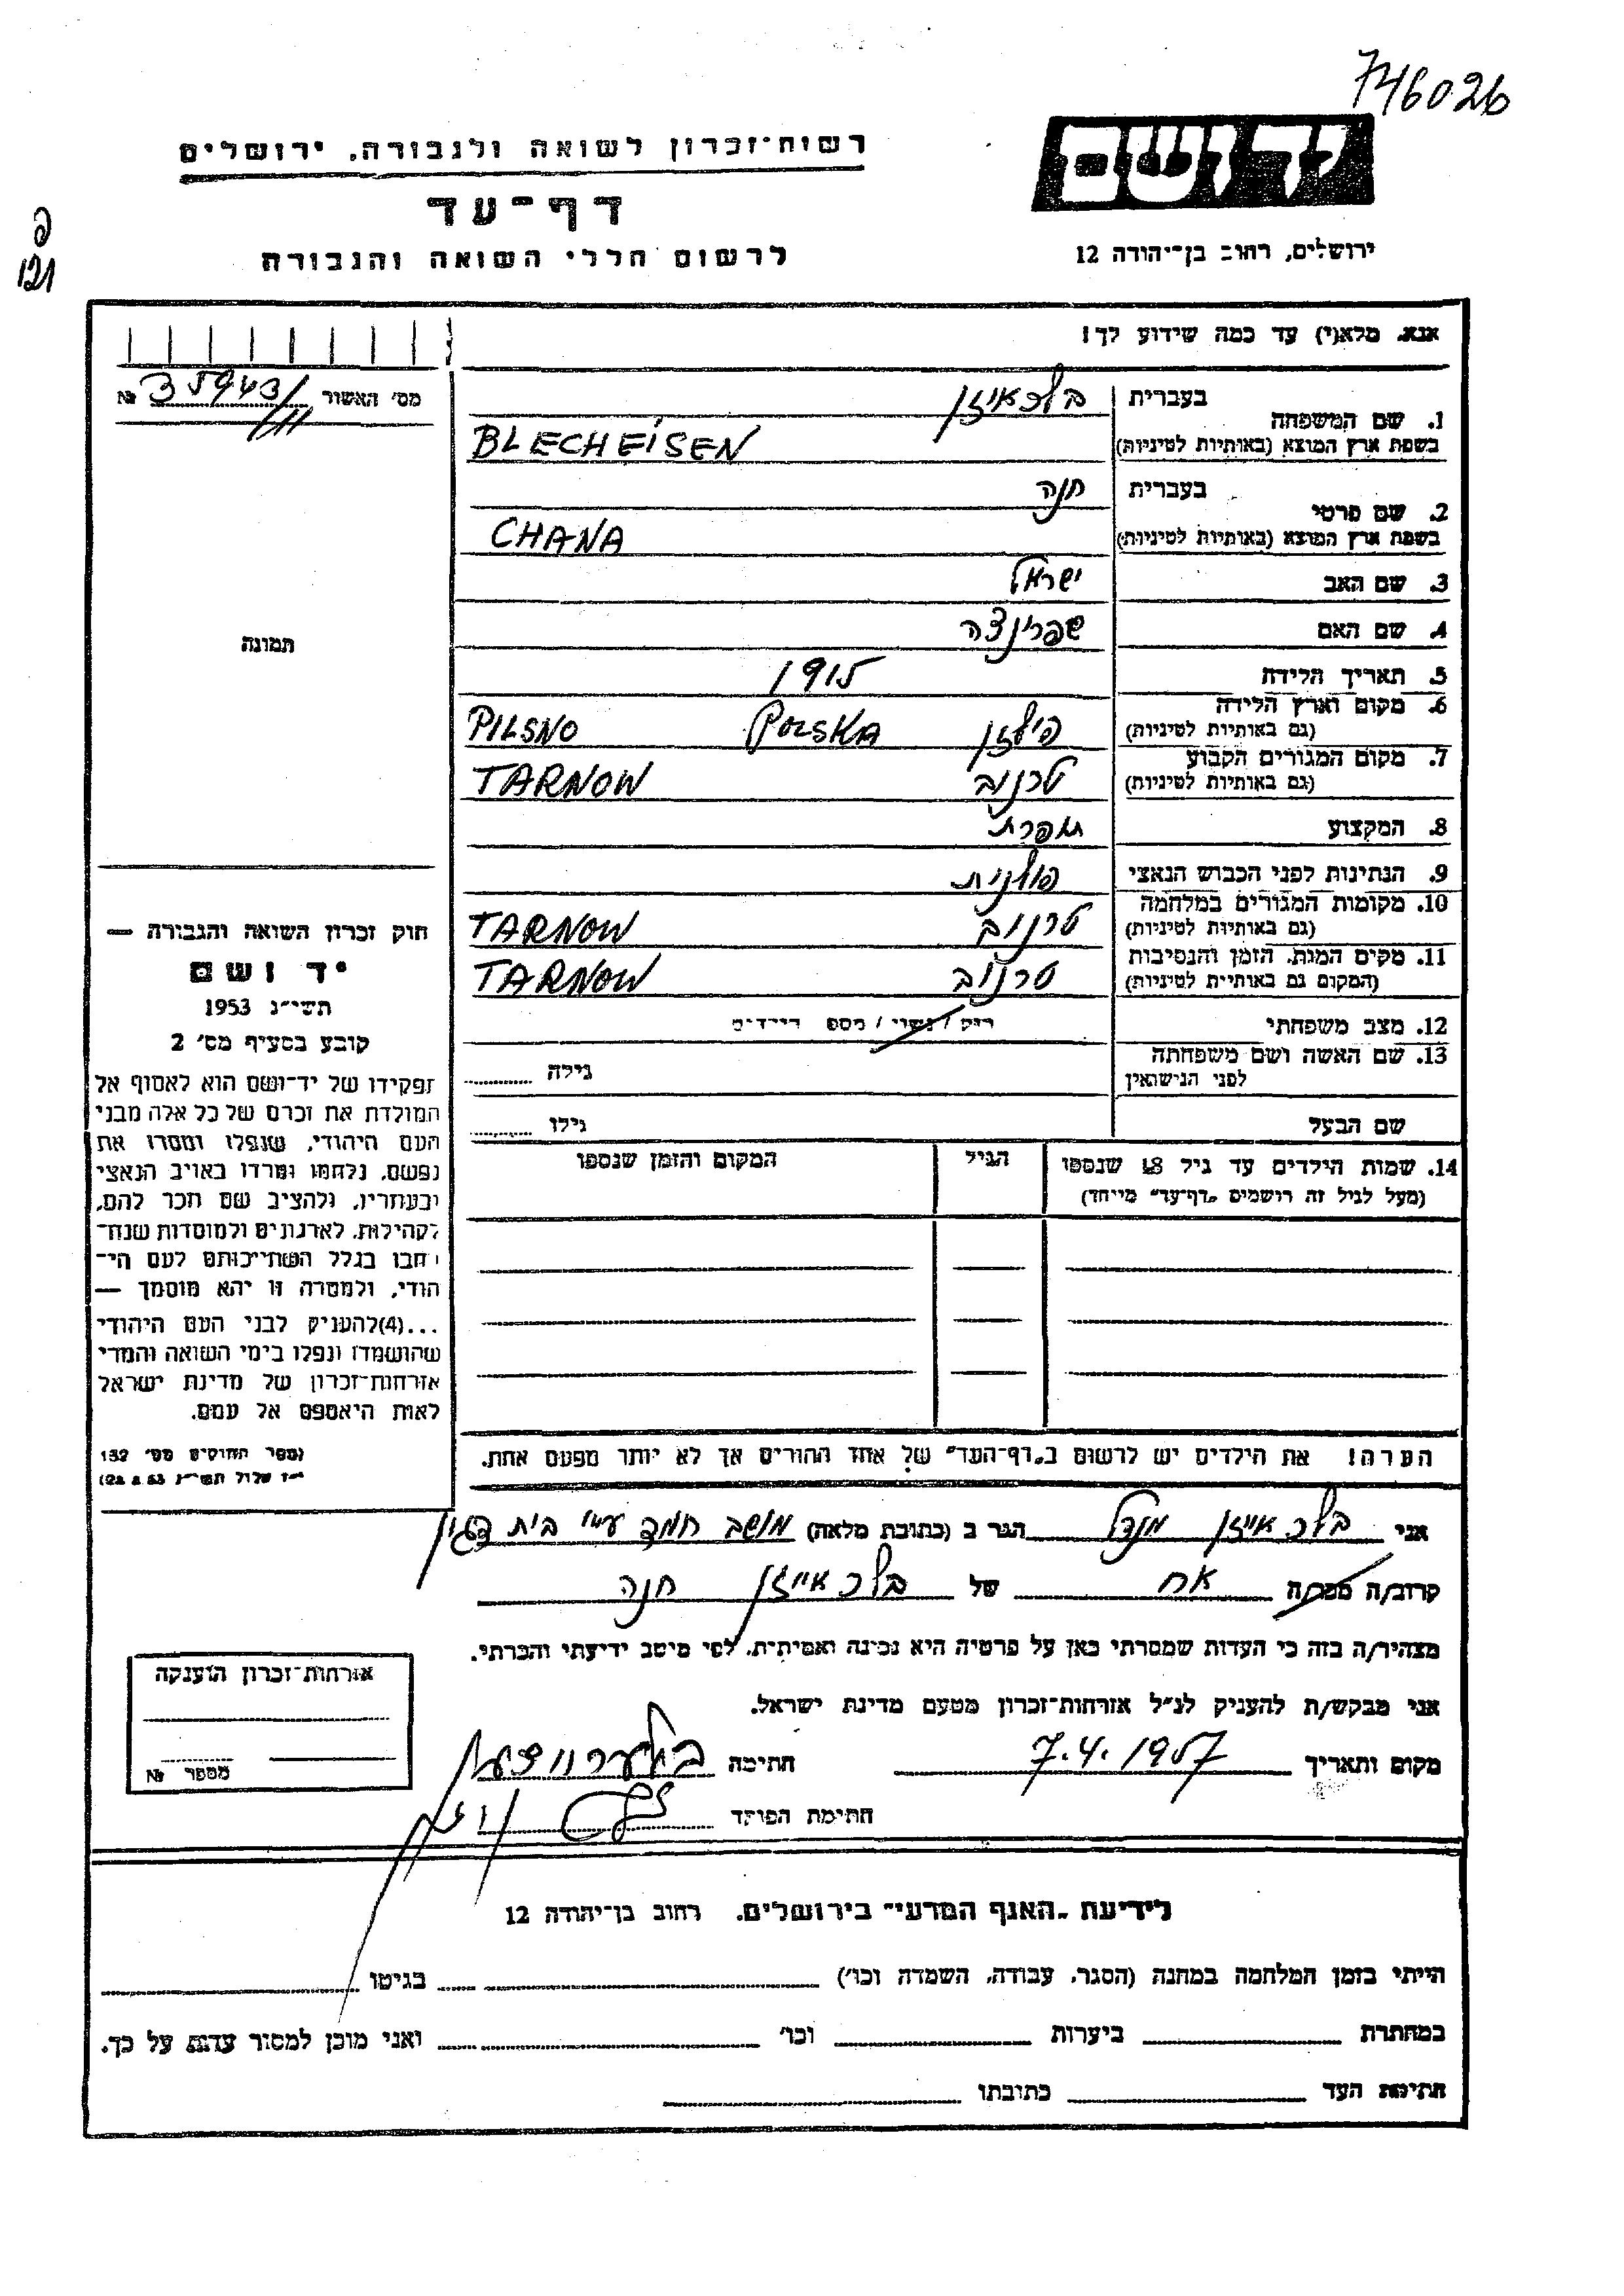 746026
יד ושם
רשות-זכרון לשואה ולגבורה, ירושלים
דף-עד
לרשום חללי השואה והגבורה
ירושלים, רחוב בן-יהודה 12
121
אנא, מלא(י) עד כמה שידוע לך!
מס' האשור № 35943/III
1. שם המשפחה
בעברית בלכאיזן
בשפת ארץ המוצא (באותיות לטיניות) BLECHEISEN
2. שם פרטי
בעברית חנה
בשפת ארץ המוצא (באותיות לטיניות) CHANA
3. שם האב ישראל
4. שם האם שפרינצה
5. תאריך הלידה 1915
6. מקום וארץ הלידה
(גם באותיות לטיניות) פילזן POLSKA PILSNO
7. מקום המגורים הקבוע
(גם באותיות לטיניות) טרנוב TARNOW
8. המקצוע תופרת
9. הנתינות לפני הכבוש הנאצי פולנית
10. מקומות המגורים במלחמה
(גם באותיות לטיניות) טרנוב TARNOW
11. מקום המות, הזמן והנסיבות
(המקום גם באותיות לטיניות) טרנוב TARNOW
12. מצב משפחתי רוק / נשוי / מספר הילדים
13. שם האשה ושם משפחתה
לפני הנישואין גילה
שם הבעל גילו
14. שמות הילדים עד גיל 18 שנספו
(מעל לגיל זה רושמים "דף-עד" מיוחד)
הגיל
המקום והזמן שנספו
הערה! את הילדים יש לרשום ב"דף-העד" של אחד ההורים אך לא יותר מפעם אחת.
תמונה
חוק זכרון השואה והגבורה —
יד ושם
תשי"ג 1953
קובע בסעיף מס' 2
תפקידו של יד-ושם הוא לאסוף אל
המולדת את זכרם של כל אלה מבני
העם היהודי, שנפלו ומסרו את
נפשם, נלחמו ומרדו באויב הנאצי
ובעוזריו, ולהציב שם וזכר להם,
לקהילות, לארגונים ולמוסדות שנח-
רבו בגלל השתייכותם לעם הי-
הודי, ולמטרה זו יהא מוסמך —
...(4)להעניק לבני העם היהודי
שהושמדו ונפלו בימי השואה והמרי
אזרחות-זכרון של מדינת ישראל
לאות היאספם אל עמם.
(ספר החוקים מס' 132
י"ז אלול תשי"ג 28.8.53)
אני בלכאייזן מנדל הגר ב (כתובת מלאה) מושב חמד ע"י בית דגון
קרוב/ה מכר/ה אח של בלכאייזן חנה
מצהיר/ה בזה כי העדות שמסרתי כאן על פרטיה היא נכונה ואמיתית, לפי מיטב ידיעתי והכרתי.
אני מבקש/ת להעניק לנ"ל אזרחות-זכרון מטעם מדינת ישראל.
מקום ותאריך 7.4.1957 חתימה
חתימת הפוקד
אזרחות-זכרון הוענקה
מספר №
לידיעת "האגף המדעי" בירושלים, רחוב בן-יהודה 12
הייתי בזמן המלחמה במחנה (הסגר, עבודה, השמדה וכו') בגיטו
במחתרת ביערות וכו' ואני מוכן למסור עדות על כך.
חתימת העד כתובתו